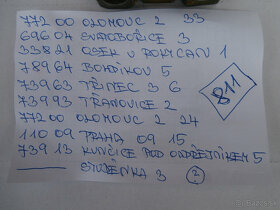 772 00 OLOMOUC 2 33
696 04 SVATOBOŘICE 3
338 21 OSEK U ROKYCAN 1
789 64 BOHDÍKOV 5
739 63 TŘINEC 3 6
739 93 TŘANOVICE 2
772 00 OLOMOUC 2 24
110 09 PRAHA 09 15
739 13 KUNČICE POD ONDŘEJNÍKEM 5
STUDÉNKA 3 ?
811